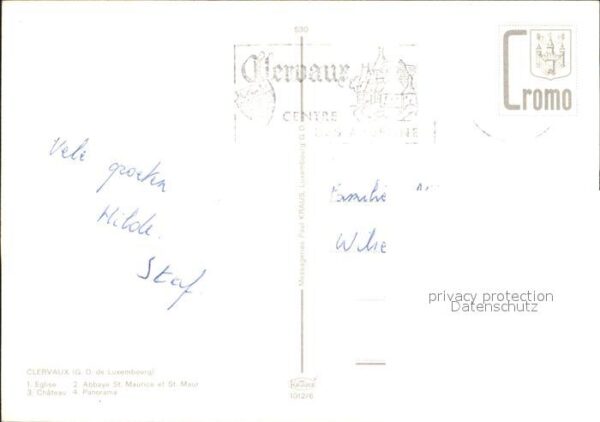 530
Clervaux
CENTRE
DES ARDENNE
Cromo
Vele groeten
Hilde.
Staf.
Messageries Paul KRAUS, Luxembourg G. D.
Familie
privacy protection
Datenschutz
CLERVAUX (G. D. de Luxembourg)
1. Eglise 2. Abbaye St. Maurice et St. Maur
3. Château 4. Panorama
1012/6